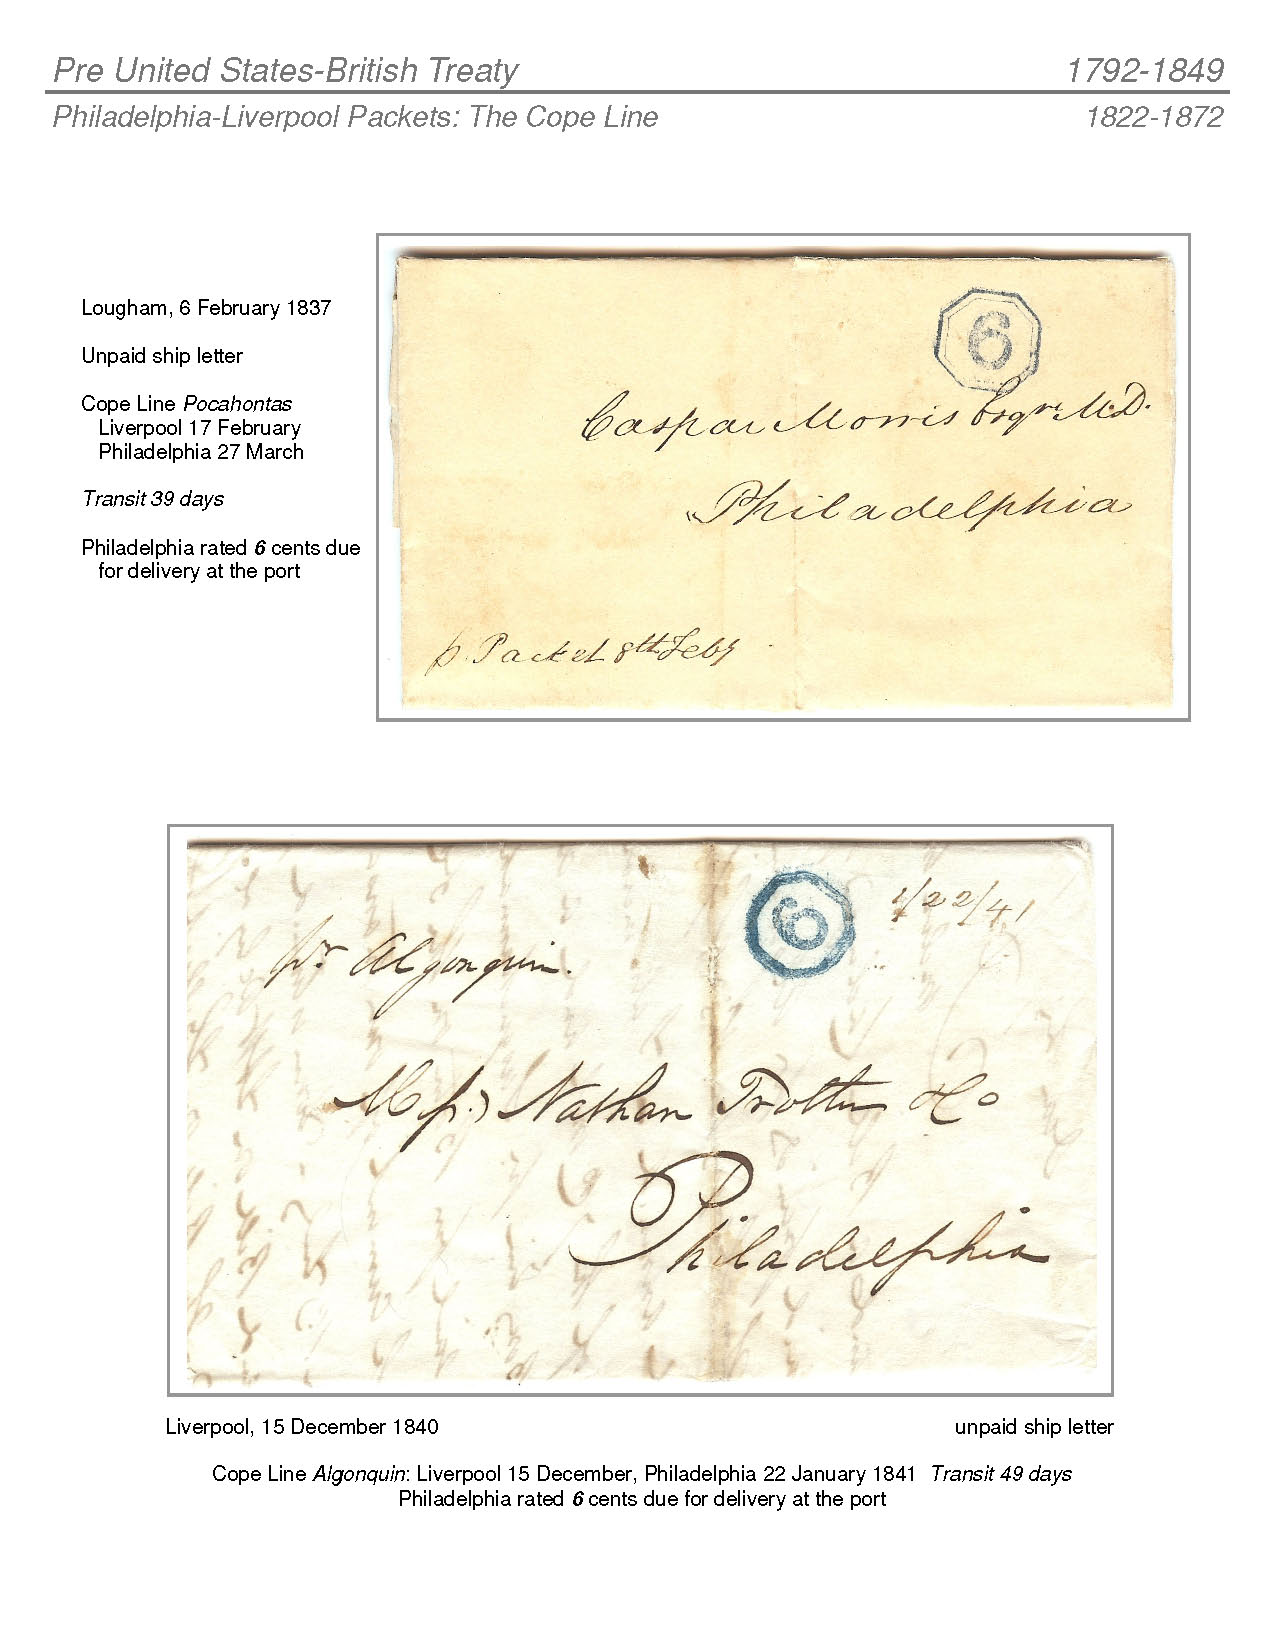 Pre United States-British Treaty 1792-1849
Philadelphia-Liverpool Packets: The Cope Line 1822-1872
Lougham, 6 February 1837
Unpaid ship letter
Cope Line Pocahontas
Liverpool 17 February
Philadelphia 27 March
Transit 39 days
Philadelphia rated 6 cents due
for delivery at the port
6
Caspar Morris Esqre M.D.
Philadelphia
p. Packet 8th Feby
6
1/22/41
pr Algonquin.
Nathan Trotter & Co
Philadelphia
Liverpool, 15 December 1840 unpaid ship letter
Cope Line Algonquin: Liverpool 15 December, Philadelphia 22 January 1841 Transit 49 days
Philadelphia rated 6 cents due for delivery at the port